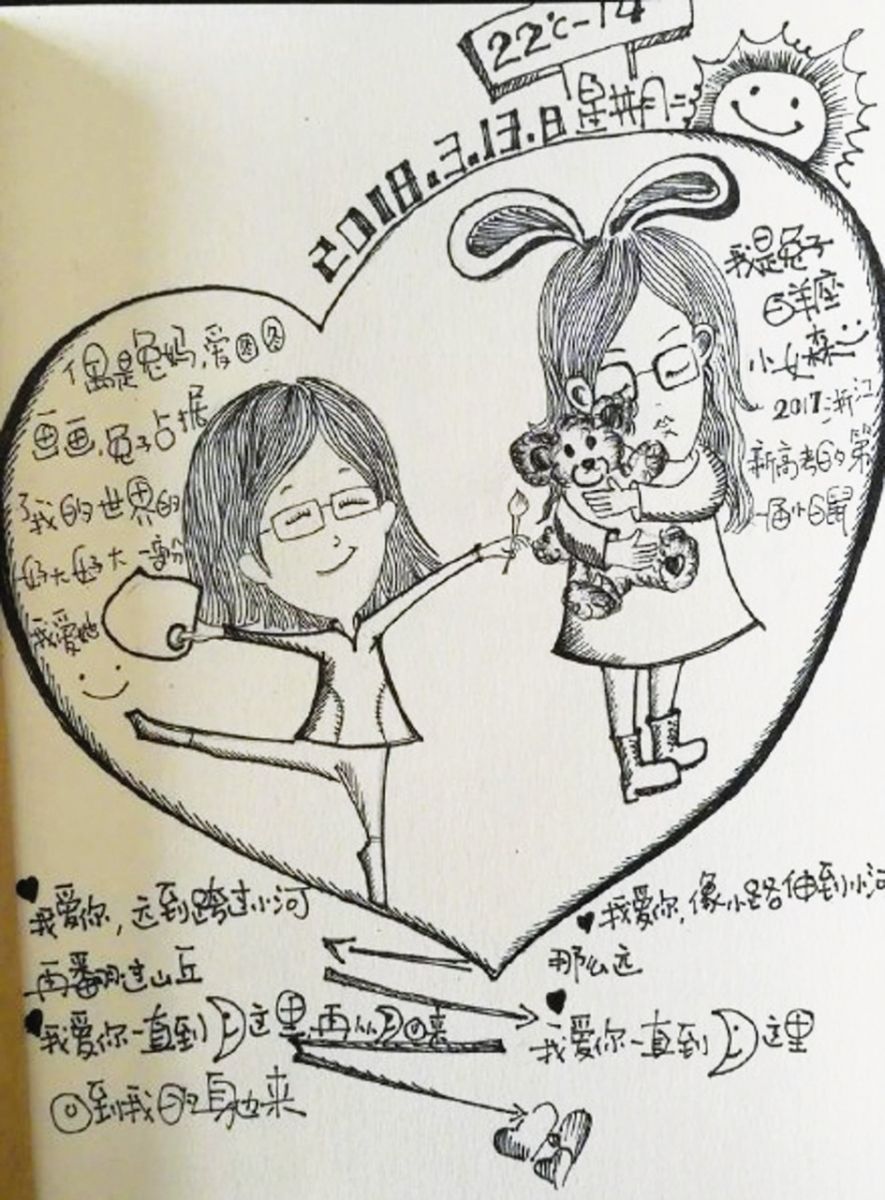 22℃-14
2018.3.13.日星期二
我是兔子
白羊座
小女森
2017浙江
新高考的第
一届小白鼠
偶是兔妈,爱图图
画画,兔子占据
了我的世界的
好大好大一部份
我爱她
我爱你,像小路伸到小河
那么远
我爱你,远到跨过小河
再翻过山丘
我爱你一直到 这里
我爱你一直到 这里,再从月回来
回到我的身边来